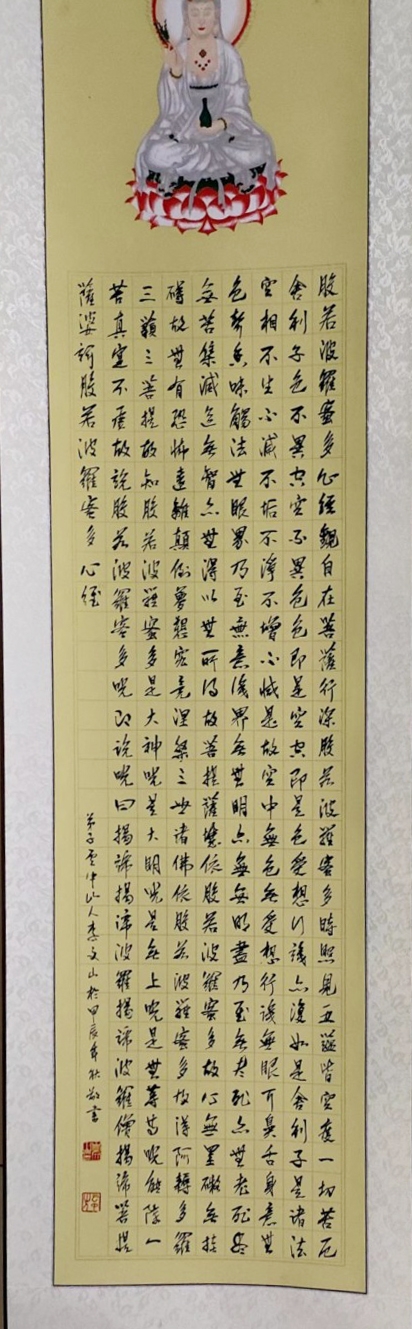 般若波羅蜜多心經觀自在菩薩行深般若波羅蜜多時照見五蘊皆空度一切苦厄
舍利子色不異空空不異色色即是空空即是色受想行識亦復如是舍利子是諸法
空相不生不滅不垢不淨不增不減是故空中無色無受想行識無眼耳鼻舌身意無
色聲香味觸法無眼界乃至無意識界無無明亦無無明盡乃至無老死亦無老死盡
無苦集滅道無智亦無得以無所得故菩提薩埵依般若波羅蜜多故心無罣礙無挂
礙故無有恐怖遠離顛倒夢想究竟涅槃三世諸佛依般若波羅蜜多故得阿耨多羅
三藐三菩提故知般若波羅蜜多是大神咒是大明咒是無上咒是無等等咒能除一
苦真實不虛故說般若波羅蜜多咒即說咒曰揭諦揭諦波羅揭諦波羅僧揭諦菩提
薩婆訶般若波羅蜜多心經
弟子雲中山人李文山於甲辰年秋敬書